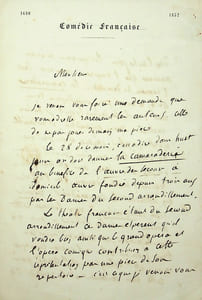 1680 1852
Comédie Française
Monsieur
je viens vous faire une demande que
vous adresse rarement les auteurs, celle
de ne pas jouer demain ma pièce
le 28 décembre, c'est à dire dans huit
jours on doit donner la camaraderie
au bénéfice de l'œuvre des secours à
domicile œuvre fondée depuis trois ans
par les dames du second arrondissement.
Le théâtre français étant du second
arrondissement ces dames espèrent qu'il
voudra bien ainsi que le grand opéra et
l'opéra comique contribuer à cette
représentation par une pièce de son
répertoire - c'est ce que je venais vous